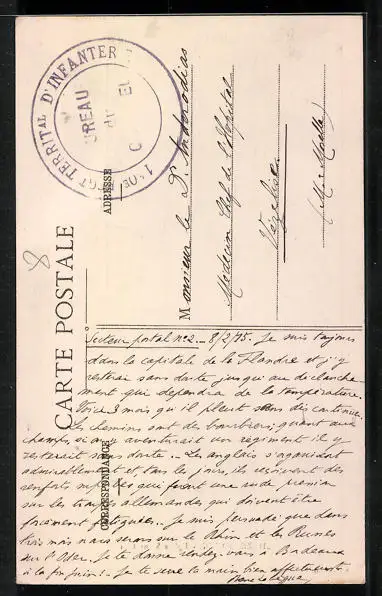 CARTE POSTALE
CORRESPONDANCE
ADRESSE
TERRITAL D'INFANTER
BUREAU
du
Monsieur le Dr
Médecin Chef de l'Hopital
Vézelise
(M. & Moselle)
8
Secteur postal n°2. – 8/2/15. Je suis toujours
dans la capitale de la Flandre et j'y
resterai sans doute jusqu'au déclanche-
ment qui dépendra de la température.
Voici 3 mois qu'il pleut sans discontinuer.
Les chemins sont de bourbiers; quant aux
champs, si on y aventurait un régiment il y
resterait sans doute.. Les anglais s'organisent
admirablement et, tous les jours, ils reçoivent des
renforts qui feront une rude pression
sur les troupes allemandes qui doivent être
forcément fatiguées.. Je suis persuadé que dans
trois mois nous serons sur le Rhin et les Russes
sur l'Oder. Je te donne rendez-vous à Bordeaux
à la fin juin! – Je te serre la main bien affectueusement.